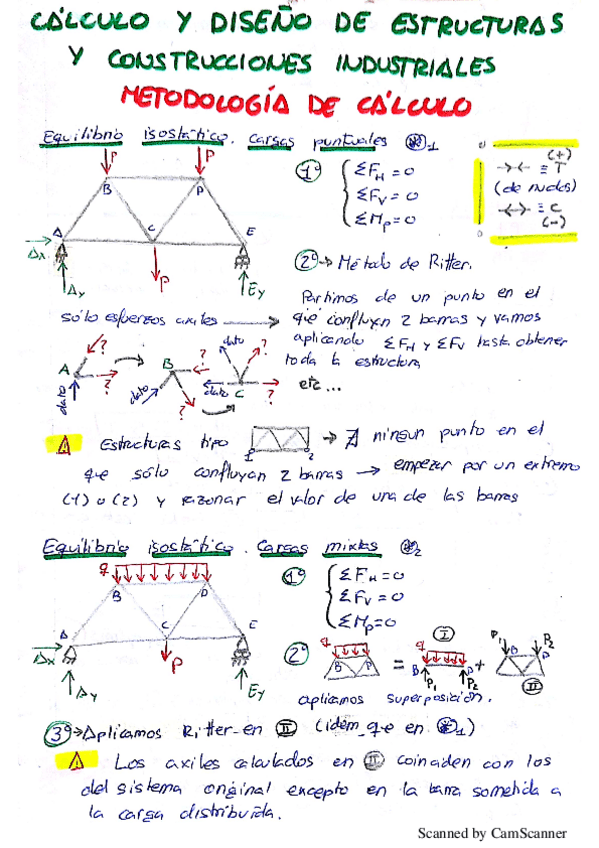 CÁLCULO Y DISEÑO DE ESTRUCTURAS
Y CONSTRUCCIONES INDUSTRIALES
METODOLOGÍA DE CÁLCULO
Equilibrio isostático. Cargas puntuales ✱1
P P
B P
A C E
Ax
P
Ay
Ey
1º ΣFH = 0
ΣFV = 0
ΣMP = 0
(+)
→← ≡ T
(de nudos)
←→ ≡ C
(-)
2º → Método de Ritter.
Partimos de un punto en el
que confluyan 2 barras y vamos
aplicando ΣFH y ΣFV hasta obtener
toda la estructura
etc...
sólo esfuerzos axiles →
A ? ? dato
B ? ? dato
C dato dato ? ?
⚠ Estructuras tipo 1 2 → ∄ ningún punto en el
que sólo confluyan 2 barras → empezar por un extremo
(1) o (2) y razonar el valor de una de las barras
Equilibrio isostático. Cargas mixtas ✱2
q
B D
A C E
Ax
P
Ay
Ey
1º ΣFH = 0
ΣFV = 0
ΣMP = 0
2º q B D = q I B P1 P2 + P1 P2 II
aplicamos superposición.
3º → Aplicamos Ritter en II (idem que en ✱1)
⚠ Los axiles calculados en II coinciden con los
del sistema original excepto en la barra sometida a
la carga distribuida.
Scanned by CamScanner